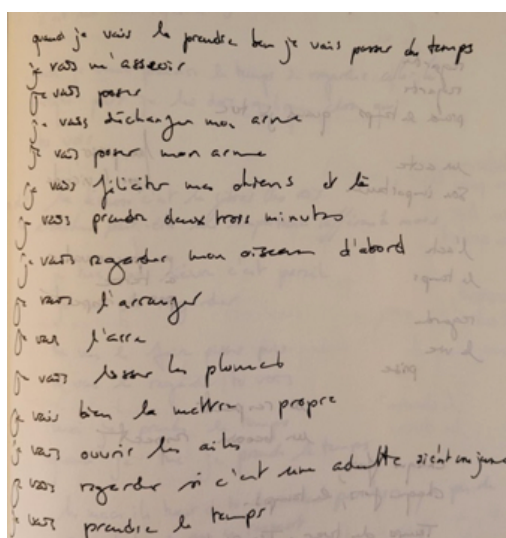 quand je vais la prendre ben je vais passer du temps
je vais m'asseoir
je vais poser
je vais décharger mon arme
je vais poser mon arme
je vais féliciter mes chiens et là
je vais prendre deux trois minutes
je vais regarder mon oiseau d'abord
je vais l'arranger
je vais l'arra
je vais lisser les plumes
je vais bien la mettre propre
je vais ouvrir les ailes
je vais regarder si c'est une adulte si c'est une jeune
je vais prendre le temps